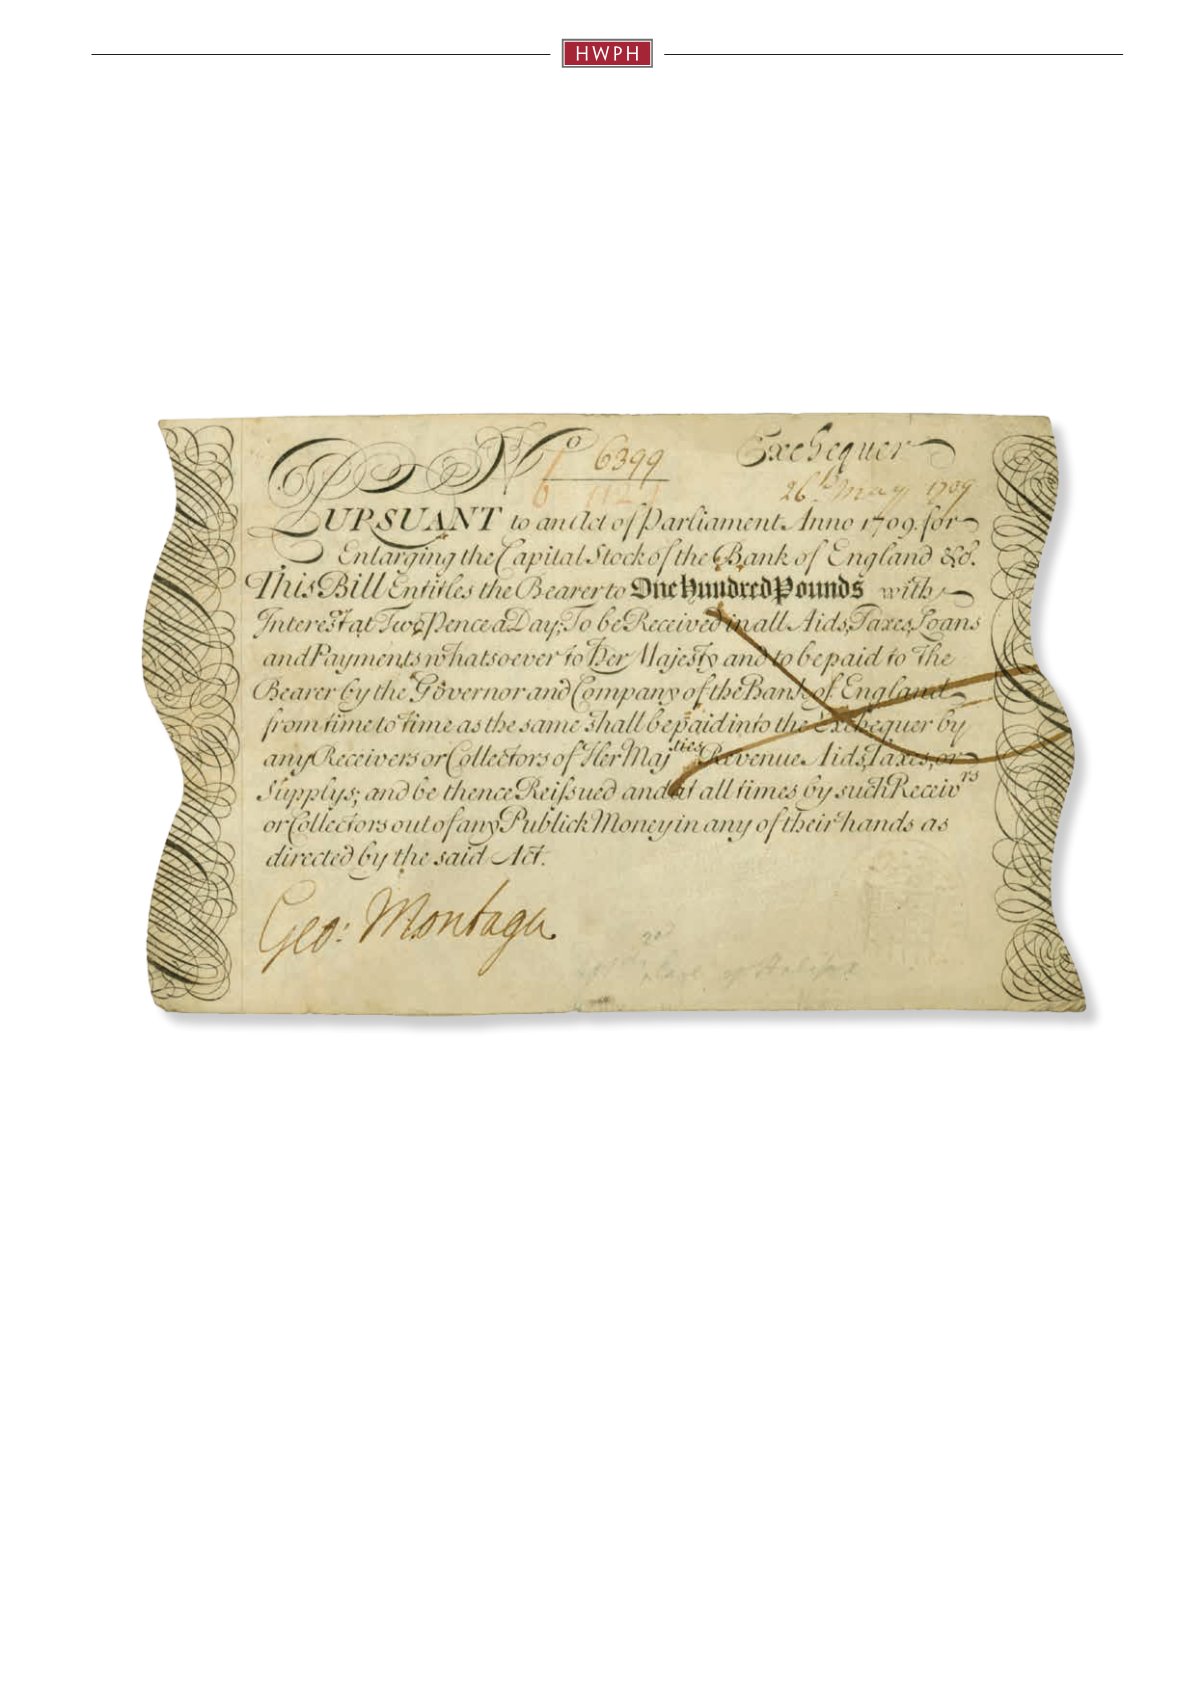 HWPH
No 6399
Exchequer
26th May 1709
PURSUANT to an Act of Parliament Anno 1709. for
Enlarging the Capital Stock of the Bank of England &c.
This Bill Entitles the Bearer to One Hundred Pounds with
Interest at Two Pence a Day, To be Received in all Aids, Taxes, Loans
and Payments whatsoever to Her Majesty and to be paid to The
Bearer by the Governor and Company of the Bank of England
from time to time as the same shall be paid into the Exchequer by
any Receivers or Collectors of Her Majties Revenue Aids, Taxes, or
Supplys; and be thence Reissued and at all times by such Receivrs
or Collectors out of any Publick Money in any of their hands as
directed by the said Act.
Geo: Montagu
of Halifax